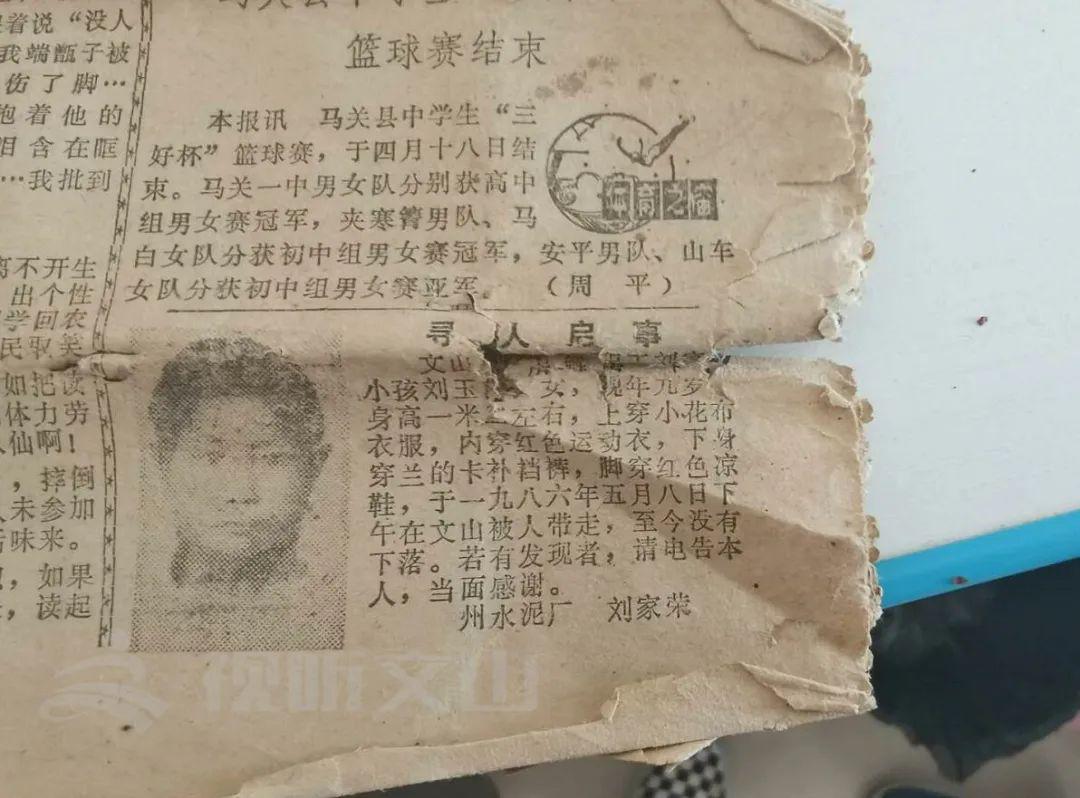 着说“没人
我端甑子被
伤了脚…
抱着他的
含在眶
…我批到
离不开生
出个性
学回农
民驭美
如把读
体力劳
仙啊！
，摔倒
未参加
味来。
，如果
，读起
篮球赛结束
本报讯 马关县中学生“三
好杯”篮球赛，于四月十八日结
束。马关一中男女队分别获高中
组男女赛冠军，夹寒箐男队、马
白女队分获初中组男女赛冠军，安平男队、山车
女队分获初中组男女赛亚军。 （周 平）
体育之窗
寻 人 启 事
文山
小孩刘玉 女，现年九岁，
身高一米二左右，上穿小花布
衣服，内穿红色运动衣，下身
穿兰的卡补裆裤，脚穿红色凉
鞋，于一九八六年五月八日下
午在文山被人带走，至今没有
下落。若有发现者，请电告本
人，当面感谢。
州水泥厂 刘家荣
视听文山